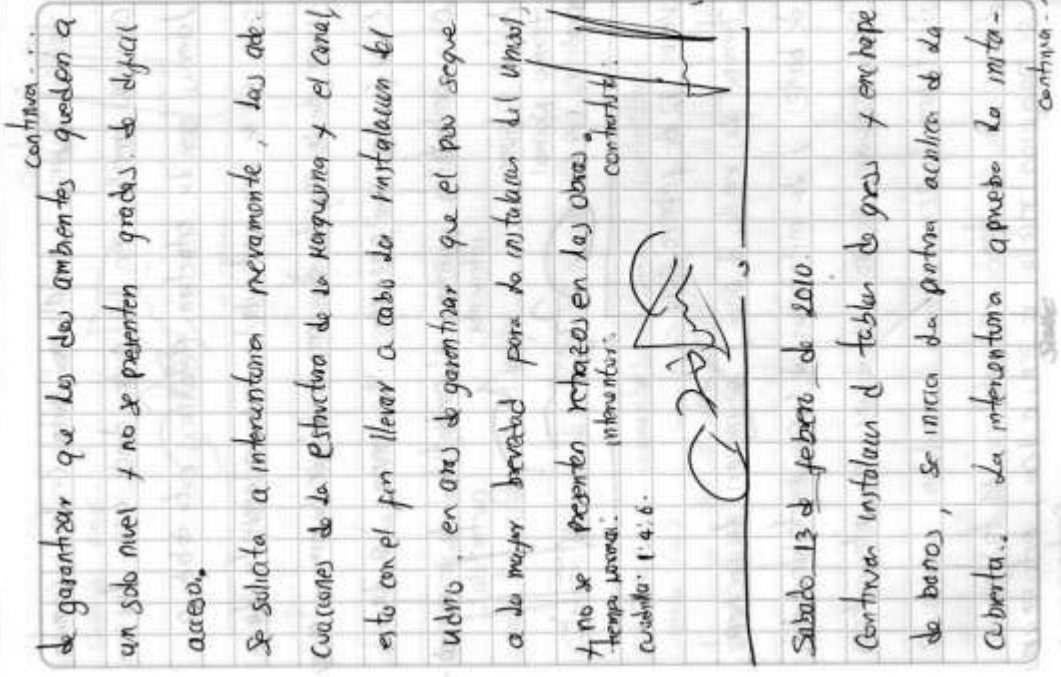 continua...
de garantizar que los dos ambientes queden a
un solo nivel y no se presenten gradas. de dificil
acceso.
Se solicita a interventoria nuevamente, las ade-
cuaciones de la estructura de la marquesina y el canal
esto con el fin llevar a cabo la instalacion del
vidrio, en aras de garantizar que el piso seque
a la mayor brevedad para la instalacion del
y no se presenten retrazos en las obras.
tiempo normal: interventor: contratista:
cuadrilla: 1:4:6.
Sabado 13 de febrero de 2010.
Continua instalacion d tablon de gress y enchape
de baños, se inicia la pintura acrilica de la
cubierta. La interventoria aprueba la insta-
continua -